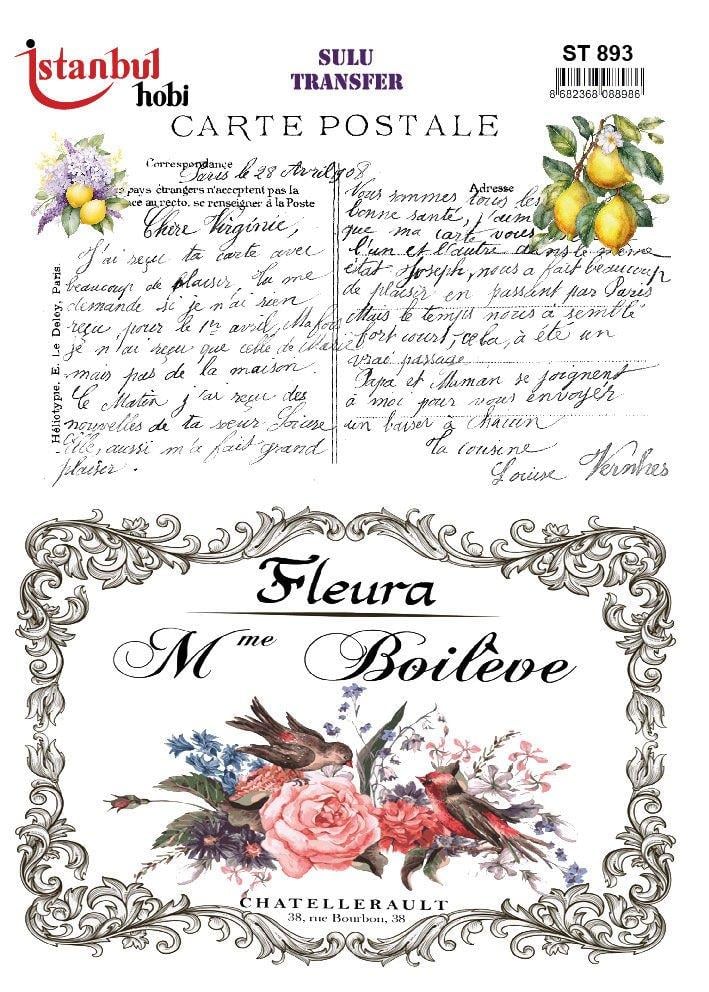 istanbul
hobi
SULU
TRANSFER
ST 893
8 682368 088986
CARTE POSTALE
Correspondance
Paris le 28 Avril 908
pays étrangers n'acceptent pas la
ce au recto. se renseigner à la Poste
Chère Virginie,
J'ai reçu ta carte avec
beaucoup de plaisir, tu me
demande si je n'ai rien
reçu pour le 1er avril, Ma foi
je n'ai reçu que celle de Marie
mais pas de la maison.
Ce Matin j'ai reçu des
nouvelles de ta sœur Louise
Elle, aussi m'a fait grand
plaisir.
Héliotypie, E. Le Deloy, Paris.
Adresse
Nous sommes tous les
bonne santé, j'aim
que ma carte vous
l'un et l'autre dans le même
état Joseph, nous a fait beaucoup
de plaisir en passant par Paris
Mais le temps nous à semblé
fort court, cela, à été un
vrai passage
Papa et Maman se joignent
à moi pour vous envoyer
un baiser à chacun
Ta cousine
Louise Vernhes
Fleura
Mme Boilêve
CHATELLERAULT
38, rue Bourbon, 38